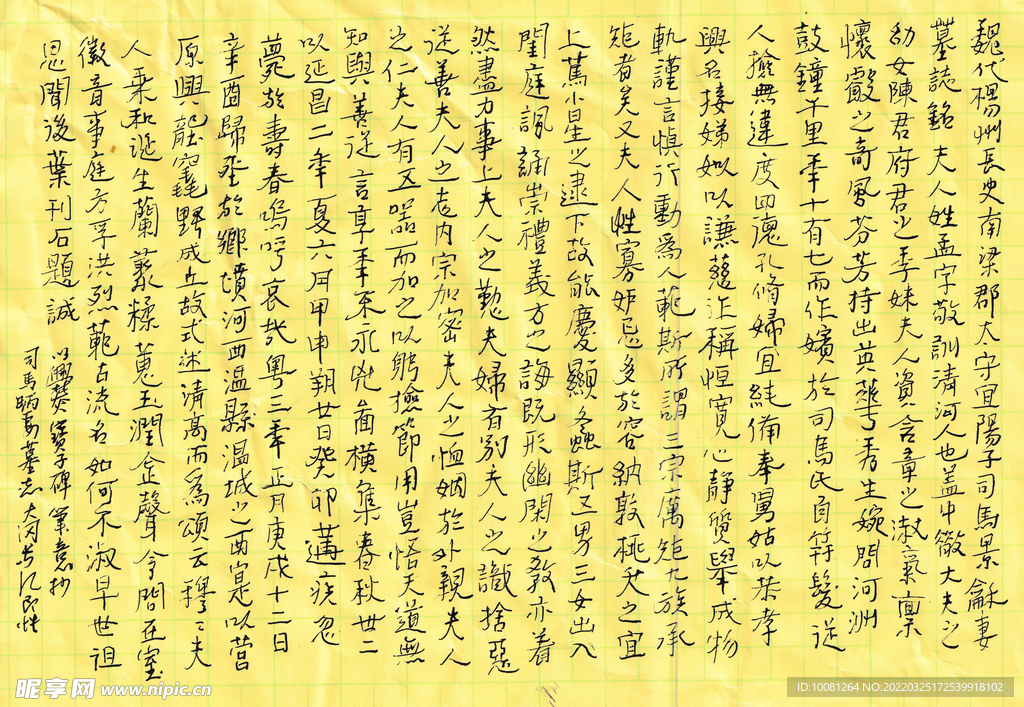 魏代楊州長史南梁郡太守宜陽子司馬景龢妻
墓誌銘夫人姓孟字敬訓清河人也蓋中散大夫之
幼女陳君府君之季妹夫人資含章之淑氣稟
懷霰之奇風芬芳特出英華秀生婉問河洲
鼓鐘千里年十有七而作嬪於司馬氏自笄髮從
人撿無違度四德孔脩婦宜純備奉舅姑以恭孝
興名接娣姒以謙慈作稱恒寬心靜質舉成物
軌謹言慎行動為人範斯所謂三宗厲矩九族承
矩者矣又夫人性寡妒忌多於容納敦桃夭之宜
上篤小星之逮下故能慶顯螽斯五男三女出入
閨庭諷誦崇禮義方之誨既形幽閑之教亦着
然盡力事上夫人之勤夫婦有別夫人之識捨惡
從善夫人之志內宗加密夫人之恤姻於外親夫人
之仁夫人有五器而加之以躬撿節用豈悟天道無
知與善徒言享年不永兇圖橫集春秋卌二
以延昌二年夏六月甲申朔廿日癸卯遘疾忽
薨於壽春嗚呼哀哉粵三年正月庚戌十二日
辛酉歸塟於鄉墳河內溫縣溫城之西寔以營
原興壟窀野成丘故式述清高而為頌云穆穆夫
人乘和誕生蘭蘂糅蕙玉潤金聲令問在室
徽音事庭方孚洪烈範古流名如何不淑早世徂
恩聞後葉刊石題誠
以爨寶子碑筆意抄
司馬昞妻墓志